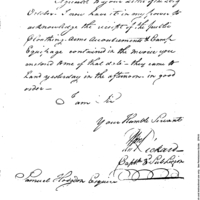 October. I am have it in my power to
acknowledge the receipt of the
Cloathing Arms Accoutrements & Camp
Equipage contained in the invoice you
enclosed me of that date - they came to
hand yesterday in the afternoon in good
order -
I am Sir
Your Humble Servant
Wm Rickard
Capt.
Samuel Hodgdon Esquire